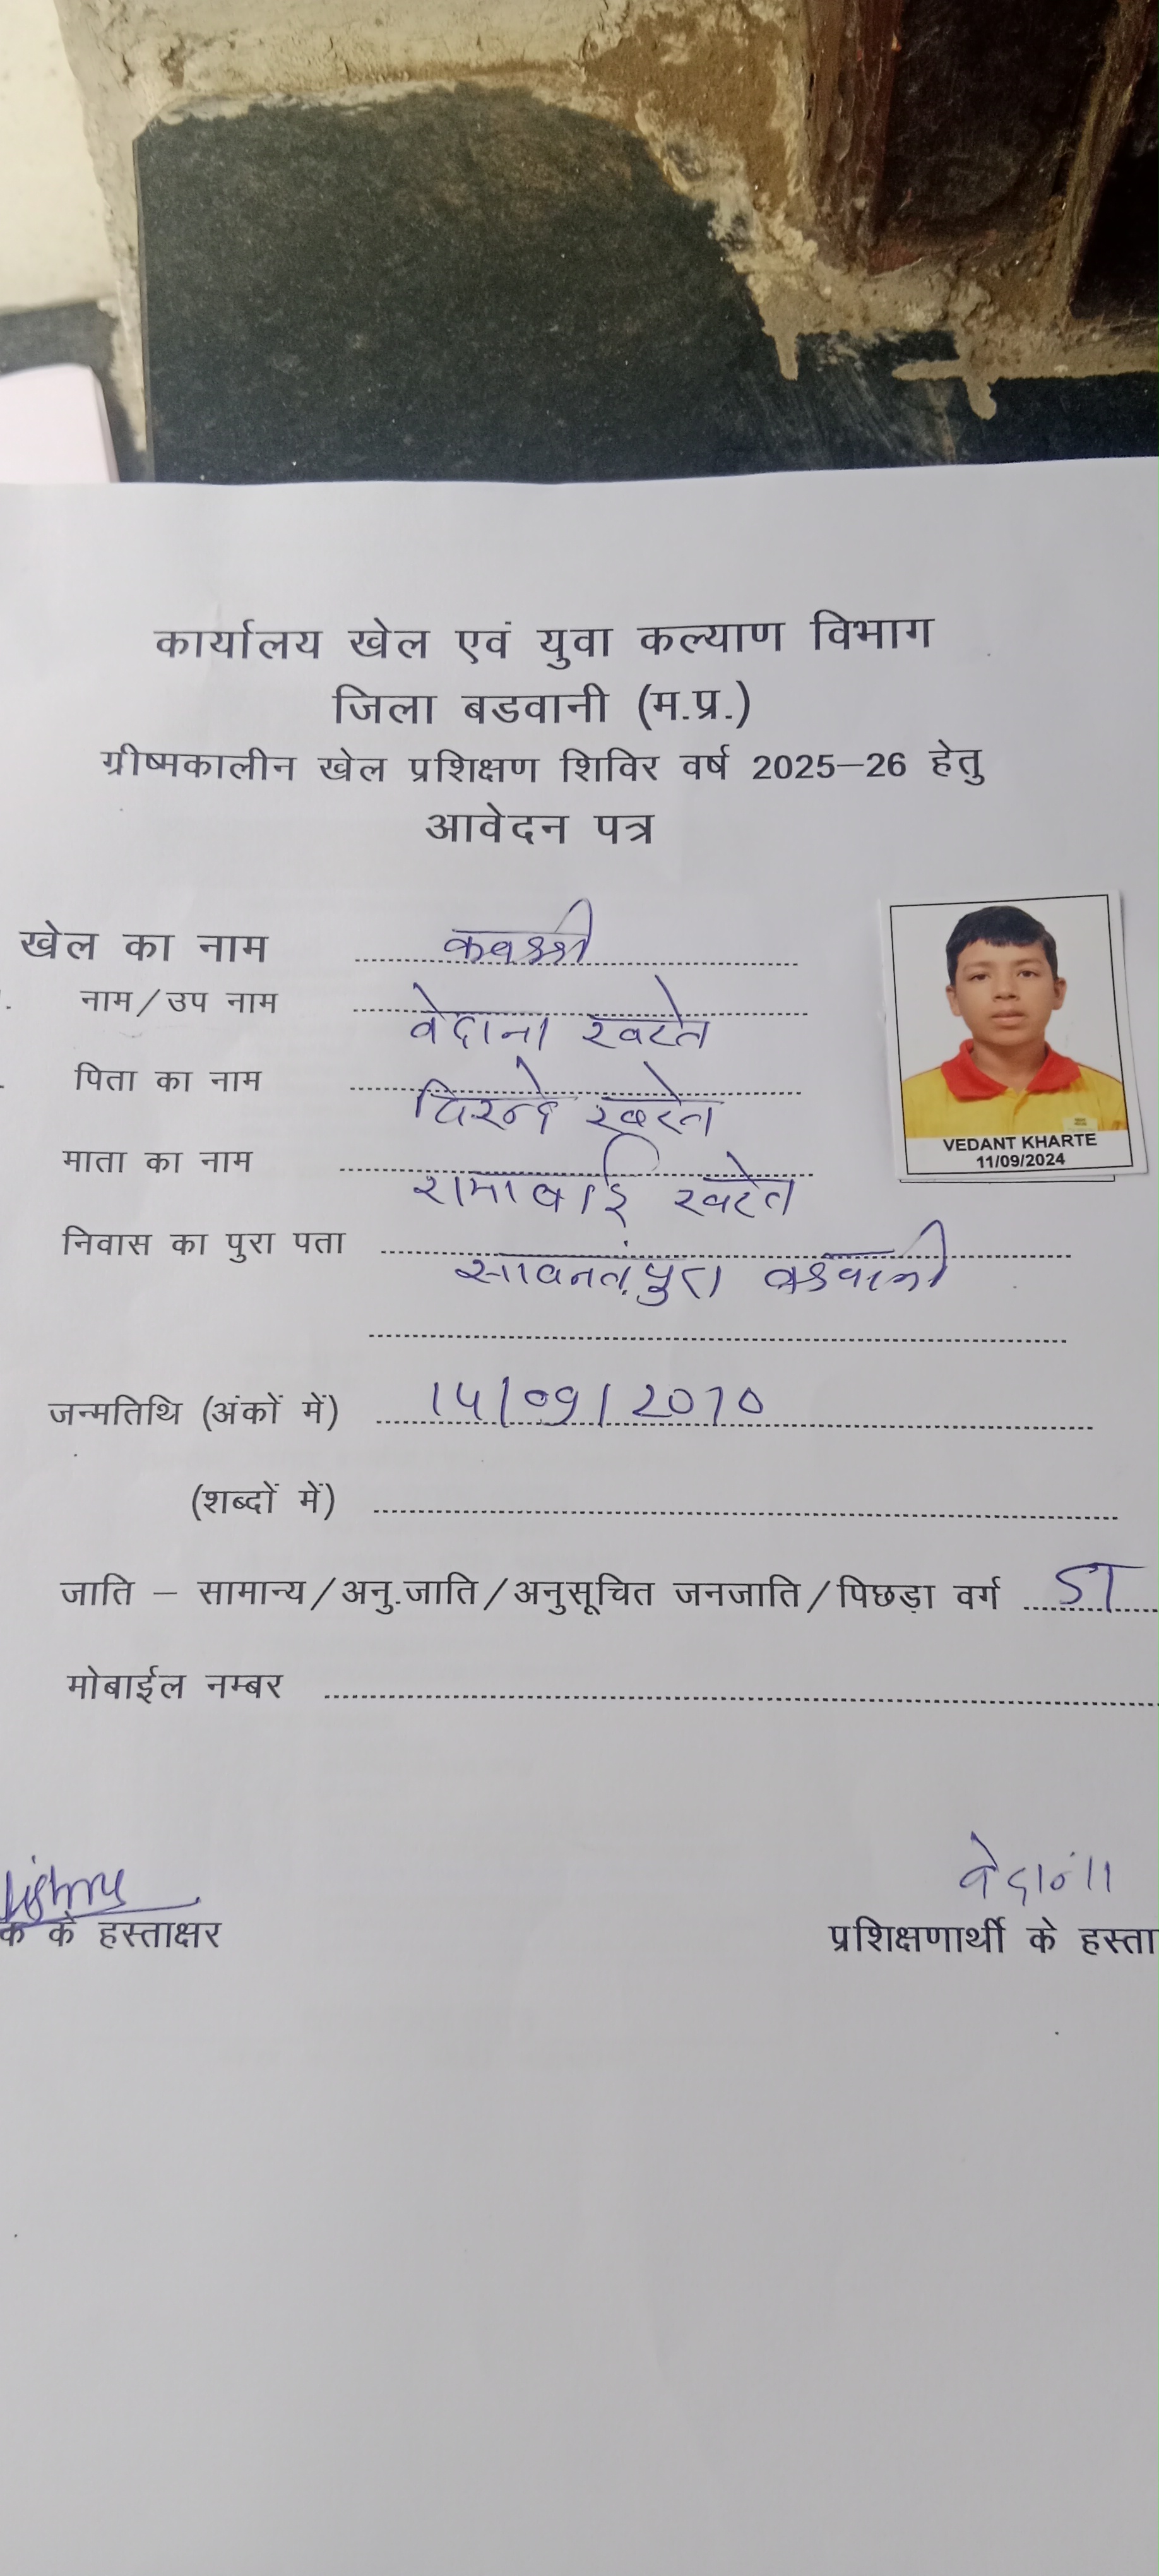 कार्यालय खेल एवं युवा कल्याण विभाग
जिला बडवानी (म.प्र.)
ग्रीष्मकालीन खेल प्रशिक्षण शिविर वर्ष 2025–26 हेतु
आवेदन पत्र
खेल का नाम कबड्डी
नाम/उप नाम वेदान्त खरते
पिता का नाम खरते
माता का नाम रामाबाई खरते
VEDANT KHARTE
11/09/2024
निवास का पुरा पता
बडवानी
जन्मतिथि (अंकों में) 14/09/2010
(शब्दों में)
जाति – सामान्य/अनु.जाति/अनुसूचित जनजाति/पिछड़ा वर्ग ST
मोबाईल नम्बर
क के हस्ताक्षर
प्रशिक्षणार्थी के हस्ता